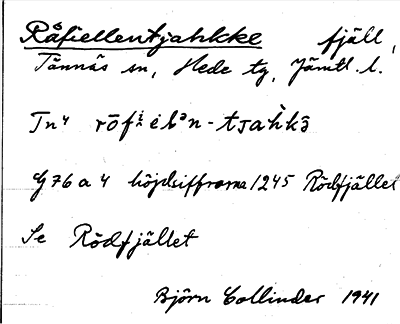 Råfiellentjahkke fjäll,
Tännäs sn, Hede tg, Jämtl. l.
Tn4
G 76 a 4 höjdsiffrorna 1245 Rödfjället
Se Rödfjället
Björn Collinder 1941